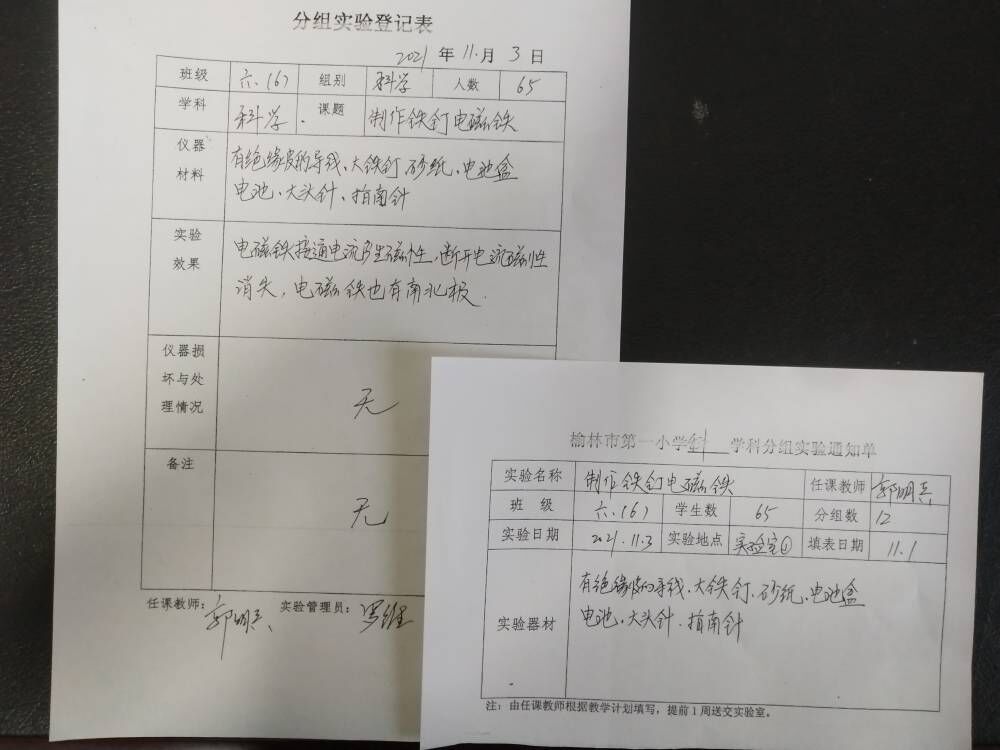 分组实验登记表
2021 年 11 月 3 日
班级 六.(6) 组别 科学 人数 65
学科 科学. 课题 制作铁钉电磁铁
仪器材料 有绝缘皮的导线、大铁钉、砂纸、电池盒
电池、大头针、指南针
实验效果 电磁铁接通电流产生磁性,断开电流磁性
消失,电磁铁也有南北极.
仪器损坏与处理情况 无
备注 无
任课教师: 郭明兵 实验管理员: 罗维
榆林市第一小学 学科分组实验通知单
实验名称 制作铁钉电磁铁 任课教师 郭明兵
班 级 六.(6) 学生数 65 分组数 12
实验日期 2021.11.3 实验地点 实验室① 填表日期 11.1
实验器材 有绝缘皮的导线、大铁钉、砂纸、电池盒
电池、大头针.指南针
注:由任课教师根据教学计划填写,提前1周送交实验室。